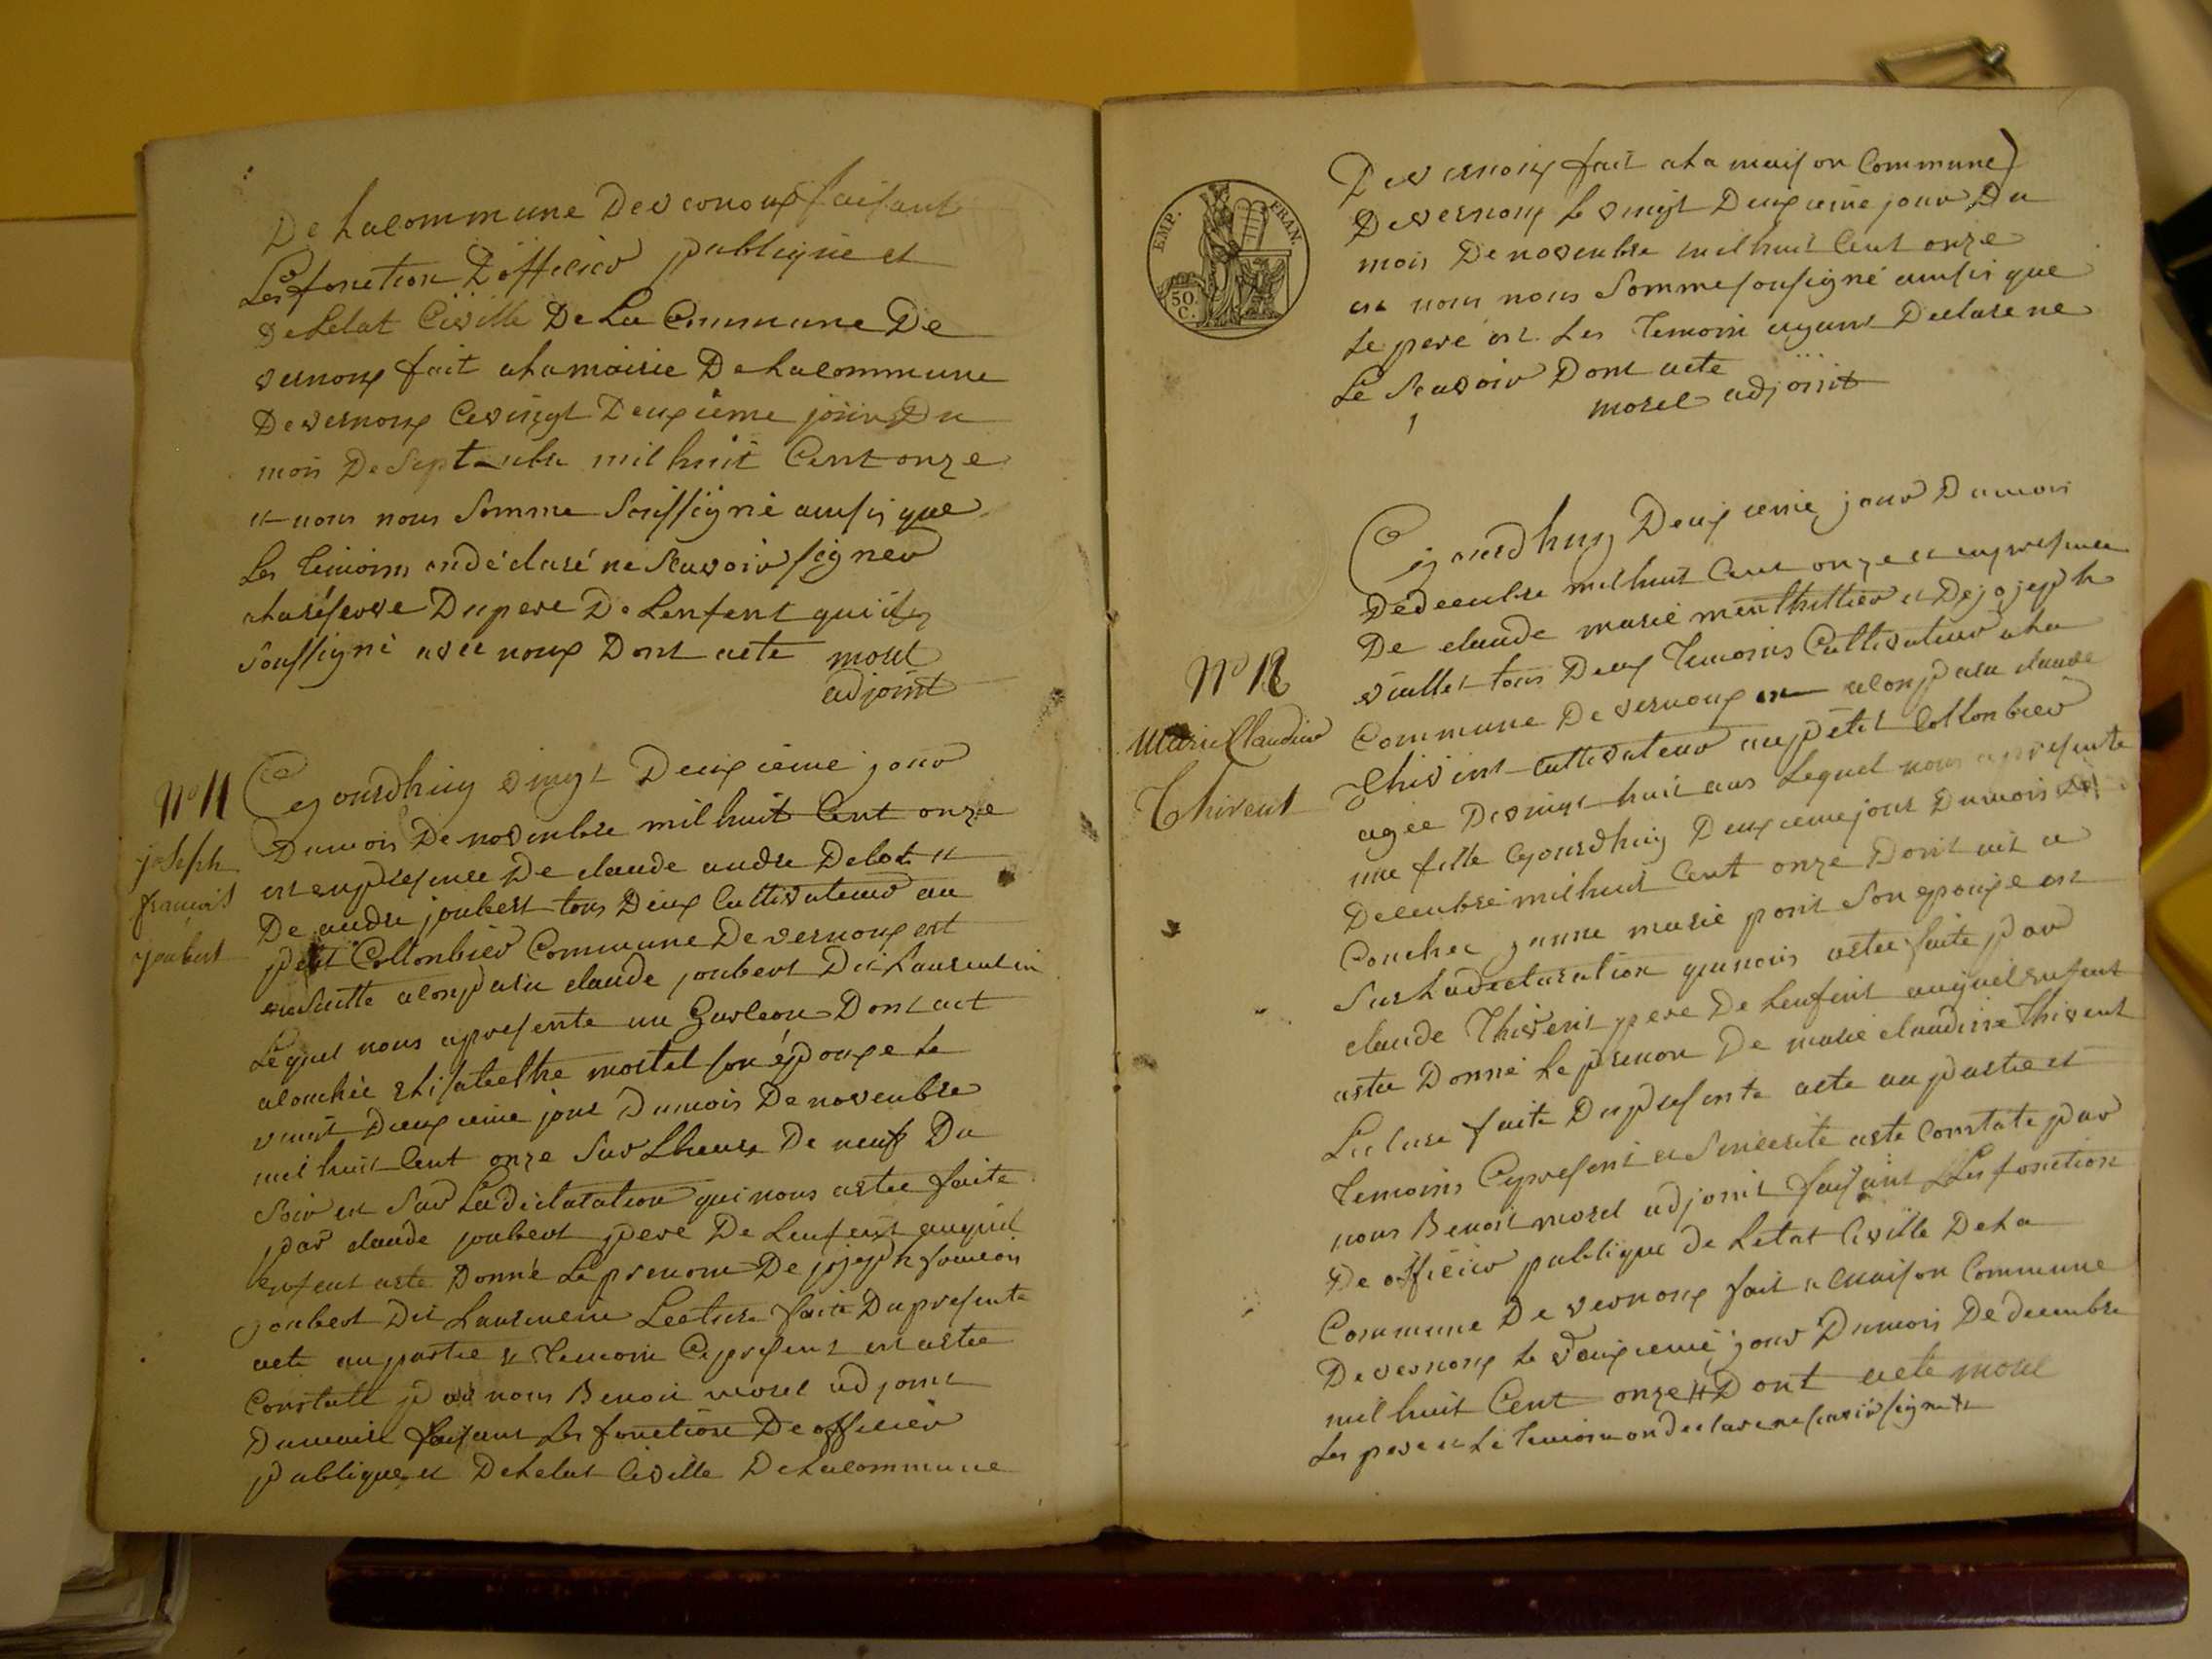 De Lacommune Devernoux faisant
Les fonction Dofficier publique et
De Letat Civille De La Commune De
vernoux fait alamairie De Lacommune
De vernoux Cevingt Deuxieme jour Du
mois De Septembre mil huit Cent onze
et nous nous Somme Soussigné ausis que
Les temoins ondéclaré ne Scavoir signer
alaréserve Dupere De Lenfent qui
Soussigné avec noux Dont acte morel
adjoint
N° 11
joseph
francois
joubert
Cejourdhuy vingt Deuxieme jour
Dumois De novembre mil huit Cent onze
est enpresence De claude andre Debot et
De andre joubert tous Deux Cultivateur au
petit Collonbier Commune De vernoux est
ensuitte alonparu claude joubert Dit Laurentin
Lequel nous apresente un Garleon Dont act
alouchée Elisabethe mortel son épouxe le
vint Deuxieme jour Dumois De novembre
mil huit Cent onze Sur Lheure De neuf Du
Soir est Sur Ladeclatation qui nous astee faite
par claude joubert pere De Lenfent auquel
Enfent aste Donné Le prenom De jojeph francois
joubert Dit Laurentin Lecture faite Dupresente
acte aupartie et temoin Cypresent est astee
Constate par nous Benoit morel adjoint
Dumaire faisant Les fonction De officier
publique et Deletat Civille De Lacommune
EMP. FRAN.
50. C.
Devernoux fait a La maison Commune
Devernoux Le vingt Deuxieme jour Du
mois De novembre mil huit Cent onze
est nous nous Somme sousigné ausis que
Le pere est Les temoin ayant Declare ne
Le Scavoir Dont acte
morel adjoint
N° 12
Marie Claudine
Thivent
Cejourdhuy Deuxieme jour Dumois
Dedecembre mil huit Cent onze et enpresence
De claude marie menthillier et De jojeph
viallet tous Deux temoins Cultivateur a La
Commune De vernoux alonparu claude
Thivent Cultivateur au petit Collonbier
agee De vingt huit ans Lequel nous apresente
une fille Cejourdhuy Deuxieme jour Dumois De
Decembre mil huit Cent onze Dont act a
Couchee janne marie pont Son epouxe est
Sur Ladeclaration quinous astee faite par
claude Thivent pere De Lenfent auquel enfent
astee Donné Le prenom De marie claudine Thivent
Lecture faite Dupresente acte aupartie et
temoins Cypresent et Sincerite aste Constate par
nous Benoit morel adjoint faisant Les fonction
De officier publique de Letat Civille De La
Commune De vernoux fait a Maison Commune
De vernoux Le Deuxieme jour Dumois De decembre
mil huit Cent onze # Dont acte morel
Les pere et Le temoin on declare ne scavoir signe #